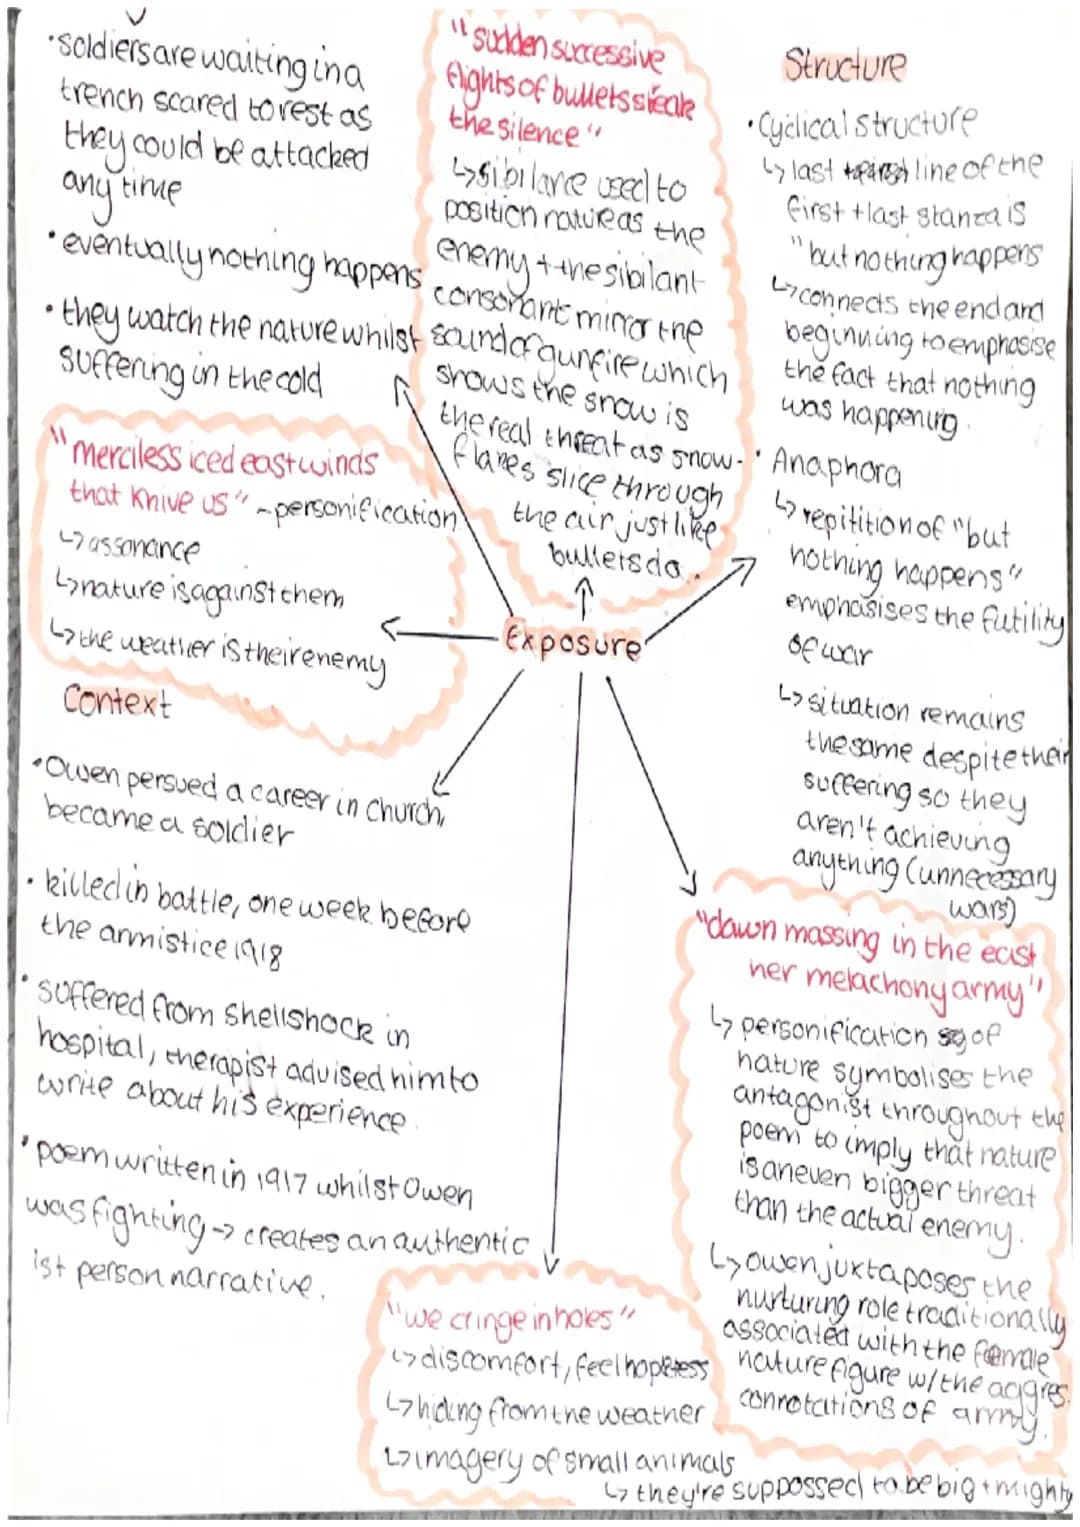 •soldiers are waiting in a
trench scared to rest as
they could be attacked
any time
•eventually nothing happens
•they watch the nature whilst
suffering in the cold
"merciless iced east winds
that knive us" - personification
↳assonance
↳nature is against them
↳the weather is their enemy
"sudden successive
flights of bullets streak
the silence"
↳sibilance used to
position nature as the
enemy + the sibilant
consonants mirror the
sound of gunfire which
shows the snow is
the real threat as snow-
flakes slice through
the air just like
bullets do.
Structure
•Cyclical structure
↳last line of the
first + last stanza is
"but nothing happens
↳connects the end and
beginning to emphasise
the fact that nothing
was happening.
•Anaphora
↳repitition of "but
nothing happens"
emphasises the futility
of war
↳situation remains
the same despite their
suffering so they
aren't achieving
anything (unnecessary
wars)
Exposure
Context
•Owen persued a career in church,
became a soldier
•killed in battle, one week before
the armistice 1918
•suffered from shellshock in
hospital, therapist advised him to
write about his experience.
•poem written in 1917 whilst Owen
was fighting → creates an authentic
1st person narrative.
"dawn massing in the east
her melachony army"
↳personification of
nature symbolises the
antagonist throughout the
poem to imply that nature
is an even bigger threat
than the actual enemy.
↳owen juxtaposes the
nurturing role traditionally
associated with the female
nature figure w/ the aggres.
connotations of army.
"we cringe in holes"
↳discomfort, feel hopeless
↳hiding from the weather
↳imagery of small animals
↳they're suppossed to be big + mighty